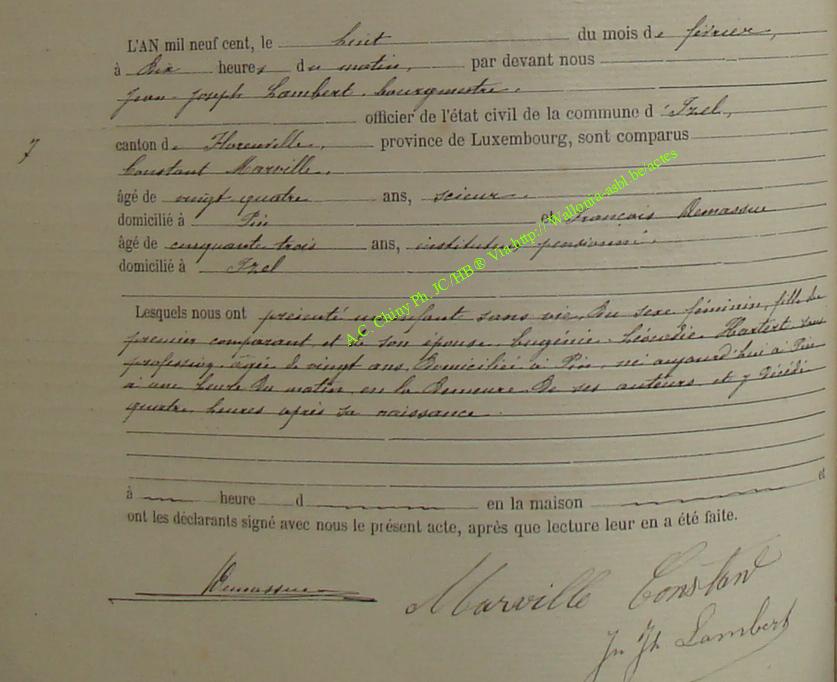 L'AN mil neuf cent, le huit du mois de février,
à dix heures du matin, par devant nous
Jean Joseph Lambert, bourgmestre,
officier de l'état civil de la commune d'Izel,
7 canton de Florenville, province de Luxembourg, sont comparus
Constant Marville,
âgé de vingt quatre ans, scieur
domicilié à Pin et François Demassue
âgé de cinquante trois ans, instituteur pensionné.
domicilié à Izel
Lesquels nous ont présenté un enfant sans vie, du sexe féminin, fille du
premier comparant et de son épouse Eugénie Léocadie Hartert, sans
profession, âgée de vingt ans, domiciliée à Pin, né aujourd'hui à Pin
à une heure du matin, en la demeure de ses auteurs et y décédé
quatre heures après sa naissance.
à heure d en la maison et
ont les déclarants signé avec nous le présent acte, après que lecture leur en a été faite.
Demassue
Marville Constant
Jn Jh Lambert
A.C. Chiny Ph. JC/HB® Via http://Wallonia-asbl.be/actes